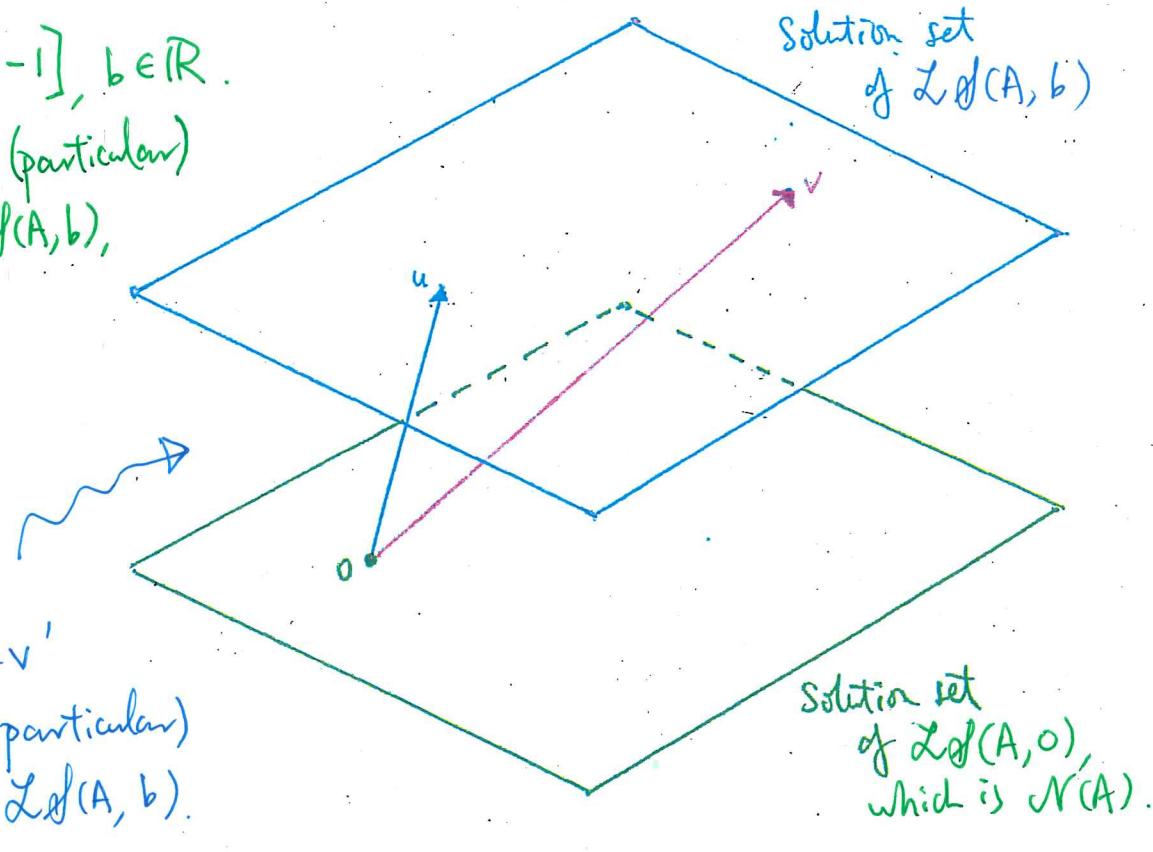 -1], b ∈ ℝ.
(particular)
𝓢(A, b),
Solution set
of 𝓛𝓢(A, b)
v
u
0
-v'
particular)
𝓛𝓢(A, b).
Solution set
of 𝓛𝓢(A, 0),
which is 𝓝(A).